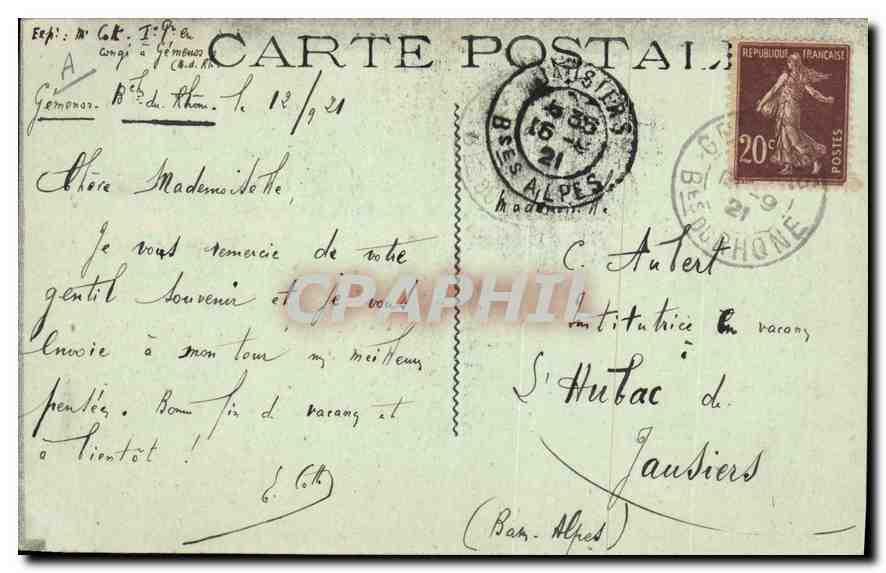 CARTE POSTALE
Exp: Mr Cott
congé à Gémenos
(B.d.Rh.)
A
Gémenos. Bches du Rhône. le 12/9 21
Chère Mademoiselle,
Je vous remercie de votre
gentil souvenir et je vous
envoie à mon tour mes meilleures
pensées. Bonne fin de vacances et
à bientôt !
E. Cott
Mademoiselle
C. Aubert
Institutrice en vacances
à
L'Hubac de
Jausiers
(Basses-Alpes)
REPUBLIQUE FRANÇAISE
20c
POSTES
JAUSIERS
21
Bses ALPES
21
Bes DU RHONE
CPAPHIL